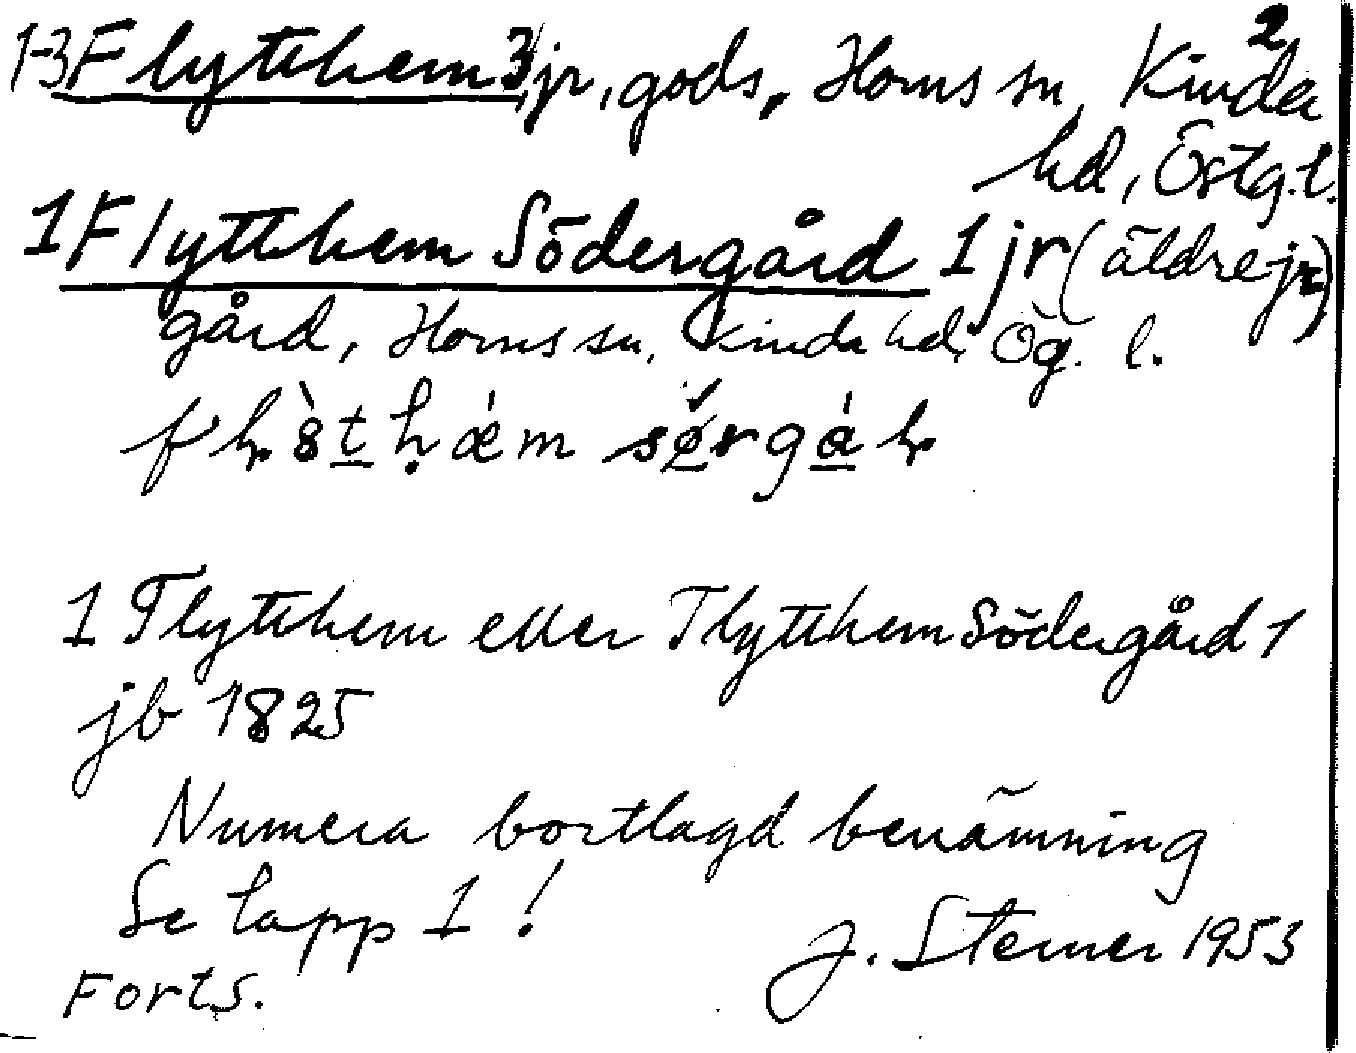 2
1-3 Flytthem 3 jr, gods, Horns sn, Kinda
hd, Östg. l.
1 Flytthem Södergård 1 jr (äldre jr)
gård, Horns sn, Kinda hd, Ög. l.
1 Flytthem eller Flytthem Södergård 1
jb 1825
Numera bortlagd benämning
Se lapp 1!
J. Sterner 1953
Forts.